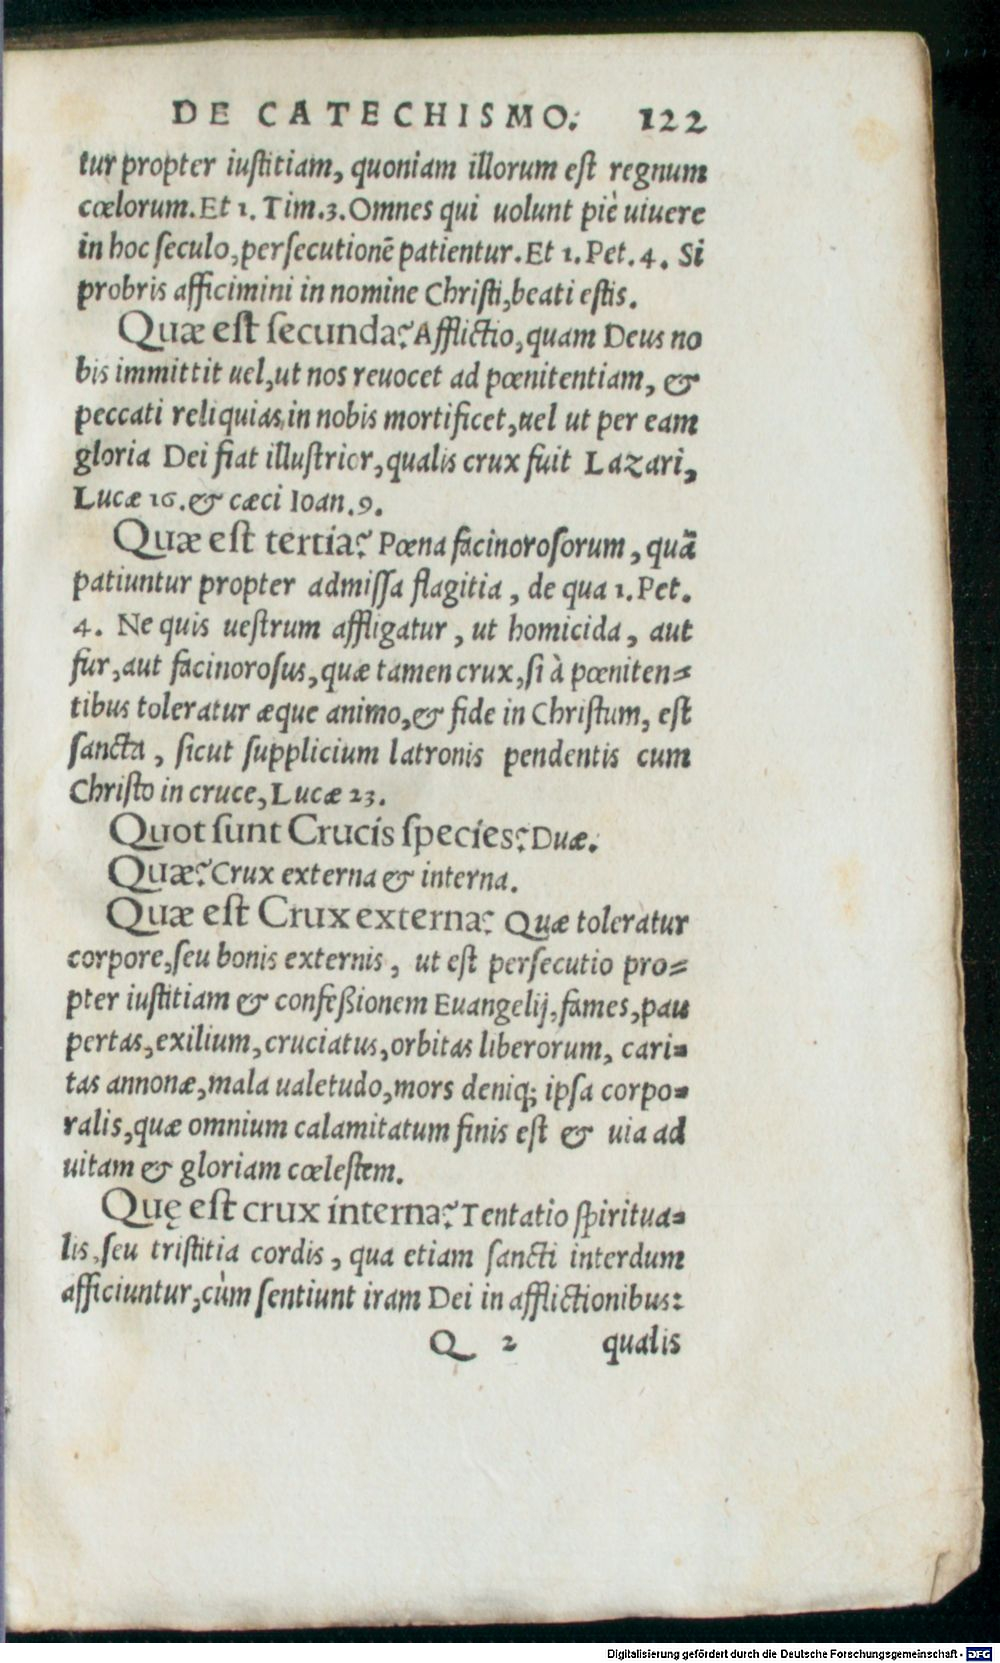 DE CATECHISMO. 122
tur propter iustitiam, quoniam illorum est regnum
cœlorum. Et 1. Tim. 3. Omnes qui uolunt piè uiuere
in hoc seculo, persecutionē patientur. Et 1. Pet. 4. Si
probris afficimini in nomine Christi, beati estis.
Quæ est secunda? Afflictio, quam Deus no
bis immittit uel, ut nos reuocet ad pœnitentiam, &
peccati reliquias in nobis mortificet, uel ut per eam
gloria Dei fiat illustrior, qualis crux fuit Lazari,
Lucæ 16. & cæci Ioan. 9.
Quæ est tertia? Pœna facinorosorum, quā
patiuntur propter admissa flagitia, de qua 1. Pet.
4. Ne quis uestrum affligatur, ut homicida, aut
fur, aut facinorosus, quæ tamen crux, si à pœniten=
tibus toleratur æque animo, & fide in Christum, est
sancta, sicut supplicium latronis pendentis cum
Christo in cruce, Lucæ 23.
Quot sunt Crucis species? Duæ.
Quæ? Crux externa & interna.
Quæ est Crux externa? Quæ toleratur
corpore, seu bonis externis, ut est persecutio pro=
pter iustitiam & confeßionem Euangelij, fames, pau
pertas, exilium, cruciatus, orbitas liberorum, cari=
tas annonæ, mala ualetudo, mors deniq; ipsa corpo=
ralis, quæ omnium calamitatum finis est & uia ad
uitam & gloriam cœlestem.
Quę est crux interna? Tentatio spiritua=
lis, seu tristitia cordis, qua etiam sancti interdum
afficiuntur, cùm sentiunt iram Dei in afflictionibus:
Q 2 qualis
Digitalisierung gefördert durch die Deutsche Forschungsgemeinschaft - DFG